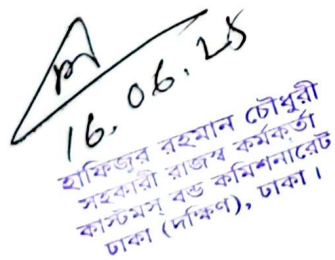 16.06.25
হাফিজুর রহমান চৌধুরী
সহকারী রাজস্ব কর্মকর্তা
কাস্টমস্ বন্ড কমিশনারেট
ঢাকা (দক্ষিণ), ঢাকা।